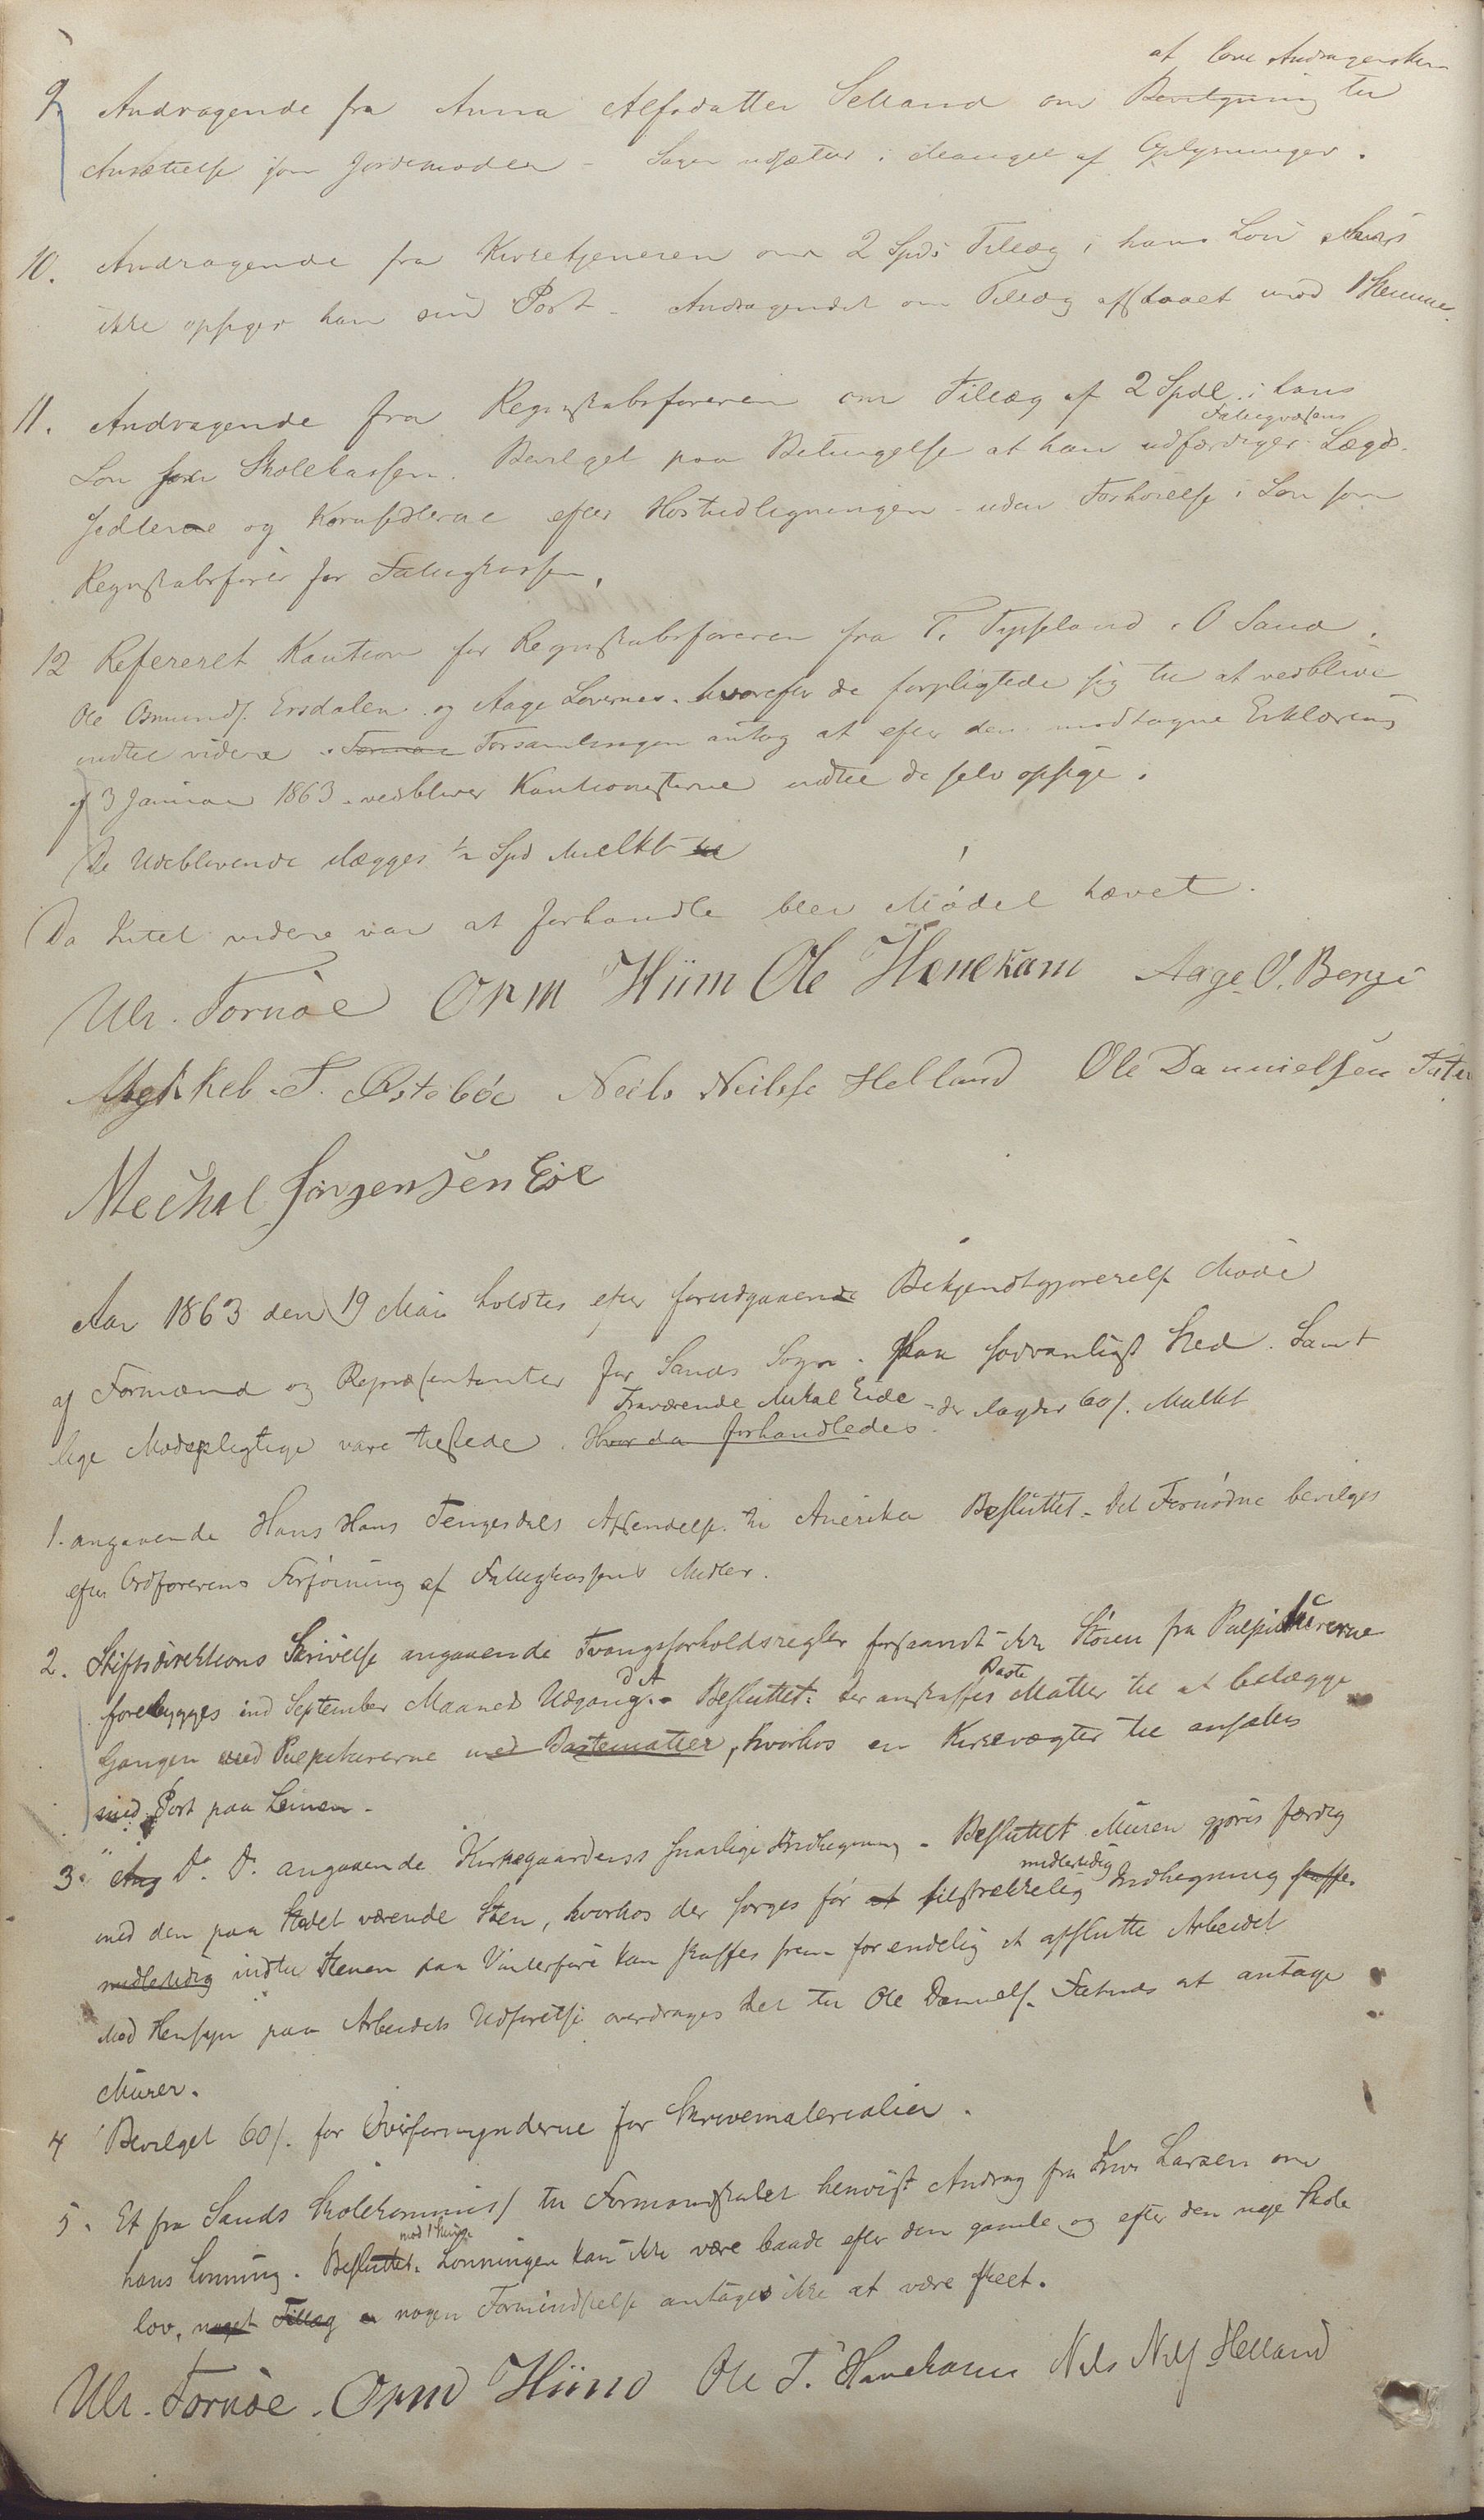 at love Andragersken
9. Andragende fra Anna Alfsdatter Selland om Bevilgning til
Ansættelse som Jordemoder - Sagen udsættes i Mangel af Oplysninger.
10. Andragende fra Kirketjeneren om 2 Spds Tillæg i hans Løn
ikke opsiger han sin Post - Andragendet om Tillæg afslaaet mod 1 Stemme.
11. Andragende fra Regnskabsføreren om Tillæg af 2 Spdl. i hans
Fattigvæsens
Løn fra Skolekassen. Bevilget paa Betingelse at han udfærdiger Lægds-
sedlerne og Kornsedlerne efter Høstudligningen - uden Forhøielse i Løn som
Regnskabsfører for Fattigkassen.
12 Refereret Kaution for Regnskabsføreren fra T. Tysseland, O Sand,
Ole Osmunds. Ersdalen og Aage Løvernes - hvorefter de forpligtede sig til at vedblive
indtil videre. Forsamlingen antog at efter den modtagne Erklæring
af 3 Januar 1863 vedbliver Kautionisterne indtil de selv opsige.
De Udeblivende ilægges ½ Spd Mulkt
Da Intet videre var at forhandle blev Mødet hævet.
Ulr. Tornøe Orm Hiim Ole Hanekam Aage O. Berge
Mykkel T. Østebøe Neils Neilsse Helland Ole Dannielsen
Mechal Jørgensen Eie
Aar 1863 den 19 Mai holdtes efter forudgaaende Bekjendtgjørelse Møde
af Formænd og Repræsentanter for Sands Sogn - paa sædvanligt Sted. Samt
Fraværende Mikal Eide - der ilagdes 60 s. Mulkt
lige Mødepligtige vare tilstede. Hvor da forhandledes.
1. angaaende Hans Hans Tengesdals Afsendelse til Amerika Besluttet - Det Fornødne bevilges
efter Ordførerens Forføining af Fattigkassens Midler.
2. Stiftsdirektions Skrivelse angaaende Tvangsforholdsregler forsaavidt ikke Støien fra Pulpiturerne
forebygges ind September Maaneds Udgang d. A. - Besluttet: der anskaffes Matter til at belægge
Baste
Gangen ved Pulpiturerne med Bastematter, hvorhos en Kirkevægter til ansættes
med Post paa Lemen.
3. Ang D. D. angaaende Kirkegaardens snarlige Indhegning - Besluttet Muren gjøres færdig
midlertidig
med den paa Stedet værende Sten, hvorhos der sørges for at tilstrækkelig Indhegning skaffes
midlertidig indtil Stenen paa Vinterføre kan skaffes frem for endelig at afslutte Arbeidet
Med Hensyn paa Arbeidets Udførelse overdrages det til Ole Daniels. Fatnes at antage
Murer.
4 Bevilget 60 s. for Overformynderne for Skrivematerialier.
5. Et fra Sands Skolekommiss til Formandskabet henvist Andrag fra Iver Larsen om
mod 1 Stemme
hans Lønning. Besluttet. Lønningen kan ikke være baade efter den gamle og efter den nye Skole
lov, noget Tillæg nogen Formindskelse antages ikke at være skeet.
Ulr. Tornøe. Orm Hiim Ole T. Hanekam Nils Nils Helland